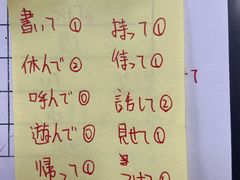 書いて①
持って①
休んで②
待って①
呼んで⓪
話して②
遊んで⓪
見せて①
帰って①
て